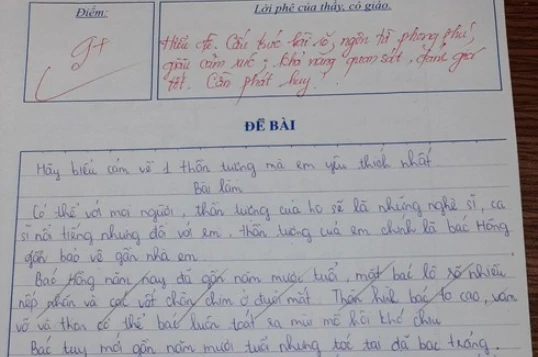 Điểm:
9+
Lời phê của thầy, cô giáo.
Hiểu đề. Cấu trúc bài rõ, ngôn từ phong phú,
giàu cảm xúc; khả năng quan sát, đánh giá
tốt. Cần phát huy!
ĐỀ BÀI
Hãy biểu cảm về 1 thần tượng mà em yêu thích nhất
Bài làm
Có thể với mọi người, thần tượng của họ sẽ là những nghệ sĩ, ca
sĩ nổi tiếng nhưng đối với em, thần tượng của em chính là bác Hồng
gần nhà em
Bác Hồng năm nay đã gần năm mươi tuổi, mặt bác lộ rõ nhiều
nếp nhăn và các vết chân chim ở dưới mắt. Thân hình bác to cao, vạm
vỡ và thân cơ thể bác luôn toát ra mùi mồ hôi khó chịu
Bác tuy mới gần năm mươi tuổi nhưng tóc tai đã bạc trắng.